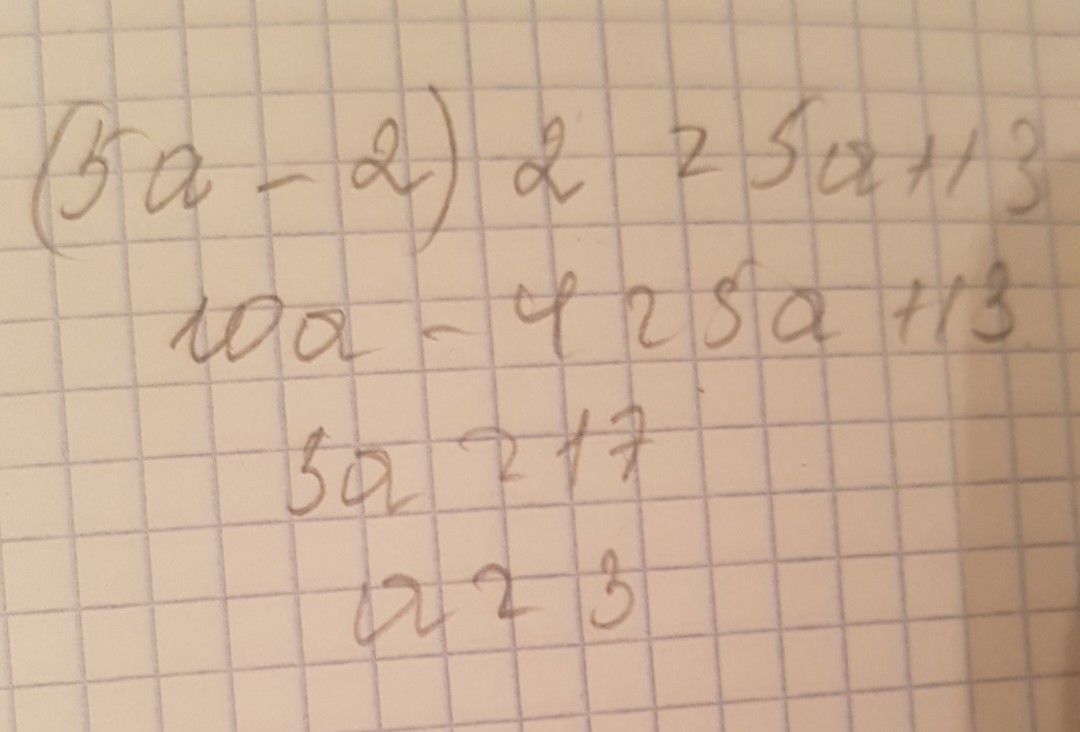 (5a - 2) 2 = 5a + 13
10a - 4 = 5a + 13
5a = 17
a = 3